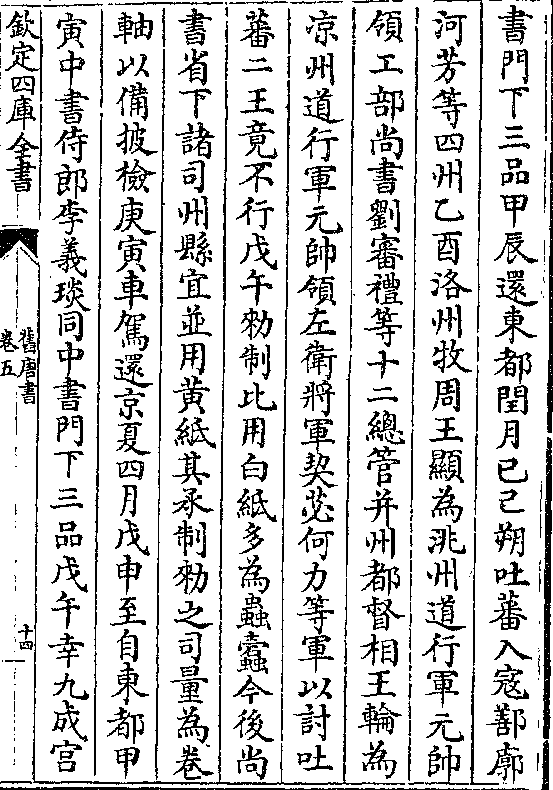 書門下三品甲辰還東都閏月己巳朔吐蕃入寇鄯廓
河芳等四州乙酉洛州牧周王顯為洮州道行軍元帥
領工部尚書劉審禮等十二總管并州都督相王輪為
涼州道行軍元帥領左衛將軍契苾何力等軍以討吐
蕃二王竟不行戊午勑制比用白紙多為蟲蠧今後尚
書省下諸司州縣宜並用黄紙其承制勑之司量為卷
軸以備披檢庚寅車駕還京夏四月戊申至自東都甲
寅中書侍郎李義琰同中書門下三品戊午幸九成宫
欽定四庫全書
舊唐書
卷五
十四